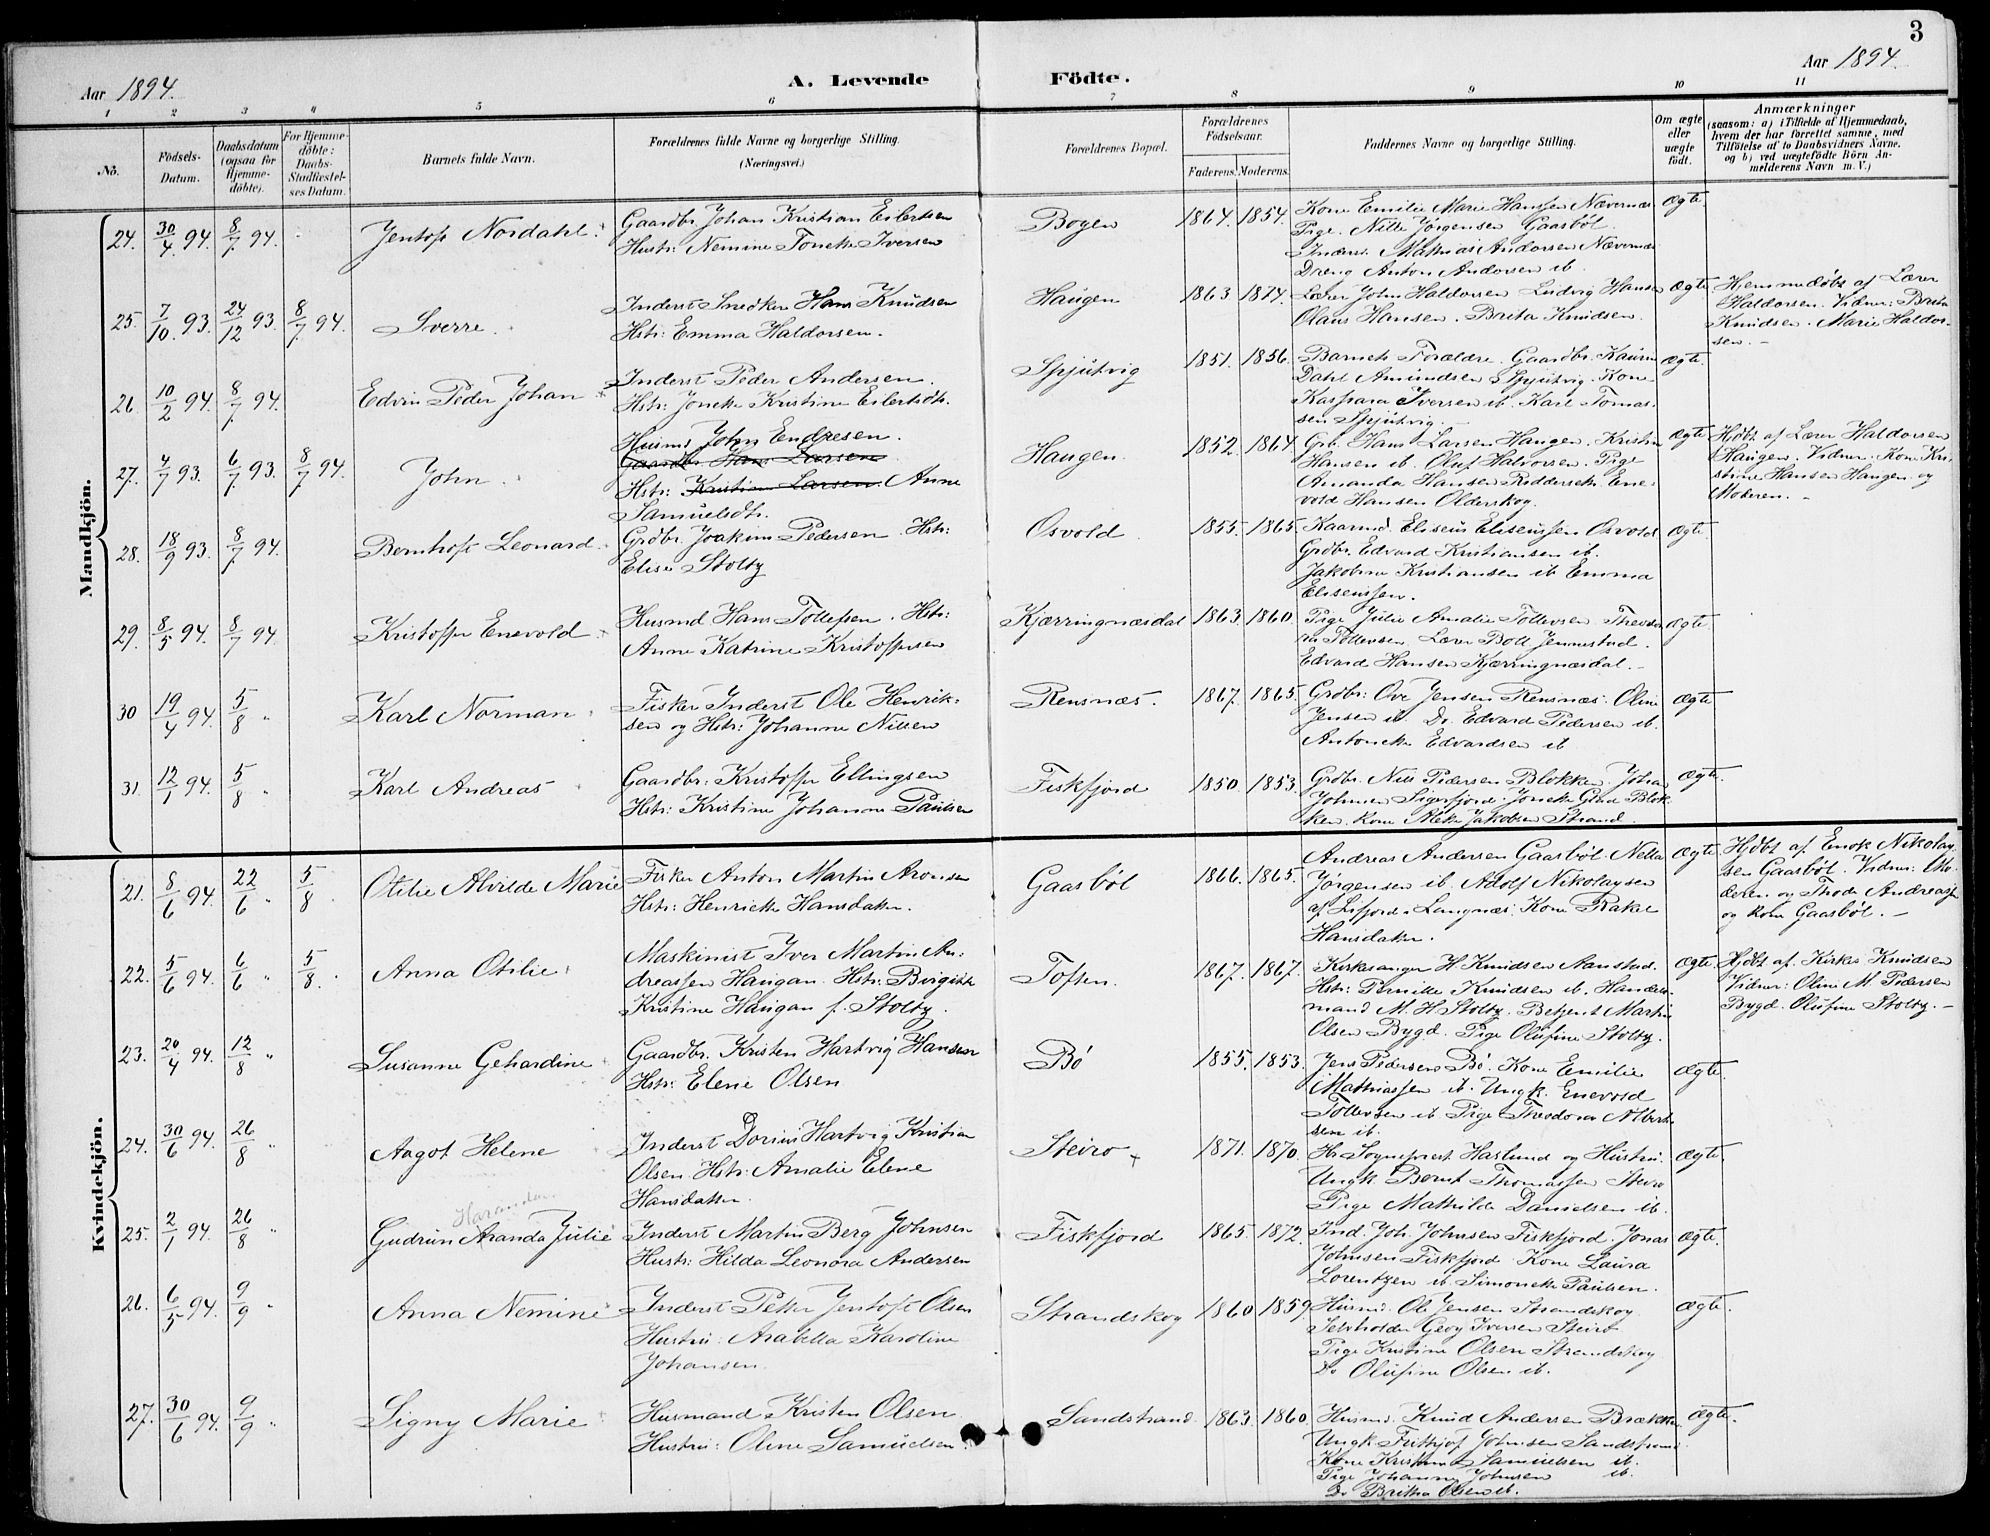 3
Aar 1894.
A. Levende Födte.
Aar 1894.
1 2 3 4 5 6 7 8 9 10 11
No.
Födsels-
Datum.
Daabsdatum
(ogsaa for
Hjemme-
döbte).
For Hjemme-
döbte:
Daabs-
Stadfæstel-
ses Datum.
Barnets fulde Navn.
Forældrenes fulde Navne og borgerlige Stilling.
(Næringsvei.)
Forældrenes Bopæl.
Forældrenes
Födselsaar.
Faderens. Moderens.
Faddernes Navne og borgerlige Stilling.
Om ægte
eller
uægte
födt.
Anmærkninger
(saasom: a) i Tilfælde af Hjemmedaab,
hvem der har forrettet samme, med
Tilföielse af to Daabsvidners Navne,
og b) ved uægtefödte Börn An-
melderens Navn m. V.)
Mandkjön.
24. 30/4 94. 8/7 94. Jentoft Nordahl.
Gaardbr. Johan Kristian Eilertsen
Hustr: Nemine Toncke Iversen
Bogen 1864. 1854.
Kone Emilie Marie Hanssen Nævernæs
Pige. Nille Jørgensen Gaasbøl.
Inders. Mathias Andorsen Nævernæs
Dreng Anton Andorsen ib.
Ægte
25. 7/10 93. 24/12 93. 8/7 94. Sverre.
Inderst Snedker Hans Knudsen
Hstr: Emma Haldorsen.
Haugen 1863 1874.
Lærer John Haldorsen Ludvig Hansen
Olaus Hansen. Brita Knudsen.
Ægte
Hjemmedøbt af Lærer
Haldorsen. Vidner: Brita
Knudsen. Marie Haldor-
sen. -
26. 10/2 94. 8/7 94. Edvin Peder Johan
Inderst Peder Andersen.
Hstr: Joncke Kristine Eilertsdtr.
Spjutvig 1851. 1856.
Barnets Forældre. Gaardbr. Kaurin
Dahl Amundsen Spjutvig. Kone
Kaspara Iversen ib. Karl Tomas-
sen Spjutvig. -
Ægte.
27. 4/7 93. 6/7 93. 8/7 94. John.
Husmd John Endresen.
Gaardbr Hans Larsen
Hstr: Kristine Larsen. Anne
Samuelsdtr.
Haugen. 1852. 1864
Grb. Hans Larsen Haugen. Kristine
Hansen ib. Oluf Halvorsen. Pige
Amanda Hansen Reddersetn. Ene-
vold Hansen Olderskog.
Ægte
Hjdbt af Lærer Haldorsen
Haugen. Vidner: Kone Kri-
stine Hansen Haugen og
Moderen. -
28. 18/9 93. 8/7 94. Bernhoft Leonard.
Grdbr. Joakim Pedersen. Hstr:
Elise Stolty
Osvold 1855. 1865.
Kaarmd. Eliseus Eliseussen Osvold
Grdbr. Edvard Kristiansen ib.
Jakobine Kristiansen ib Emma
Eliseussen.
Ægte.
29. 8/5 94. 8/7 94 Kristoffer Enevold
Husmd Hans Tollefsen. Hstr:
Anne Katrine Kristoffersen
Kjærringnæsdal 1863. 1860.
Pige Julie Amalie Tollevsen. Theodor
Tollevsen. Lærer Boll Jennestad.
Edvard Hansen Kjærringnæsdal. -
Ægte.
30 19/4 94. 5/8 " Karl Norman.
Fisker Inderst Ole Henrik-
sen og Hstr: Johanne Nilsen
Rensnæs. 1867. 1865.
Grdbr: Ove Jensen Rensnæs. Oline
Jensen ib. Do. Edvard Pedersen ib.
Antoneke Edvardsen ib
Ægte
31. 12/1 94. 5/8 " Karl Andreas
Gaardbr: Kristoffer Ellingsen
Hstr: Kristine Johanne Paulsen
Fiskfjord 1850. 1853.
Grdbr. Nils Pedersen Blokken. Johan
Johnsen Sigerfjord. Joneke Blok-
ken. Kone Jakobsen Strand.
Ægte.
Kvindekjön.
21. 8/6 94. 22/6 " 5/8 . Otilie Alvilde Marie
Fisker Anton Martin Aronsen
Hstr: Henriette Hansdatter.
Gaasbøl 1866. 1865.
Andreas Andersen Gaasbøl. Nella
Jørgensen ib. Adolf Nikolaysen
af Lifjord. Langnæs. Kone Rakel
Hansdatter.
Ægte.
Hjdbt af Enok Nikolay-
sen Gaasbøl. Vidner: Mo-
deren og Thode Andreassen
og Kone Gaasbøl. -
22. 5/6 94. 6/6 " 5/8 . Anna Otilie.
Maskinist Iver Martin An-
dreassen Haugan. Hstr: Birgitte
Kristine Haugan f. Stolty.
Toften. 1867. 1867.
Kirkesanger H. Knudsen Aanstad.
Hstr: Pernille Knudsen ib. Handels-
mand M. H. Stolty. Betjent Martin
Olsen Bygd. Pige Olufine Stolty.
Ægte.
Hjdbt af Kirkes Knudsen
Vidner: Oline M. Pedersen
Bygd. Olufine Stolty. -
23. 20/4 94. 12/8 " Susanne Gehardine
Gaardbr. Kristen Hartvig Hansen
Hstr: Elene Olsen
Bö 1855. 1853.
Jens Pedersen Bö. Kone Emilie
Mathiassen ib. Ungk. Enevold
Tollevsen ib. Pige Theodora Albert-
sen ib.
Ægte.
24. 30/6 94. 26/8 " Aagot Helene
Inderst Dorius Hartvig Kristian
Olsen. Hstr: Amalie Elene
Hansdatter.
Steiro 1871. 1870.
Hr. Sogneprest Haslund og Hustru.
Ungk. Bernt Thomassen Steiro
Pige Mathilde Danielsen ib.
Ægte.
25. 2/1 94. 26/8 " Gudrun Aranda Julie
Inderst Martin Berg Johnsen
Hustr: Hilda Leonora Andersen
Fiskfjord 1865. 1872.
Ind. Joh. Johnsen Fiskfjord. Jonas
Johnsen Fiskfjord Kone Laura
Lorentzen ib. Simoneke Paulsen.
Ægte.
26. 6/5 94. 9/9 " Anna Nemine
Inderst Petter Jentoft Olsen
Hustru: Arabella Karoline
Johansen.
Strandskog 1860 1859
Husmd. Ole Jensen Strandskog
Selvholder Georg Iversen Steiro
Pige Kristine Olsen Strandskog
Do Olufine Olsen ib.
Ægte.
27. 30/6 94. 9/9 " Signy Marie
Husmand Kristen Olsen
Hustru: Oline Samuelsen.
Sandstrand 1863. 1860.
Husmd. Knud Andersen Brækken
Ungk Frithjof Johnsen Sandstrand
Kone Kristine Samuelsen ib.
Pige Johanna Johnsen ib.
Do Britha Olsen ib.
Ægte.